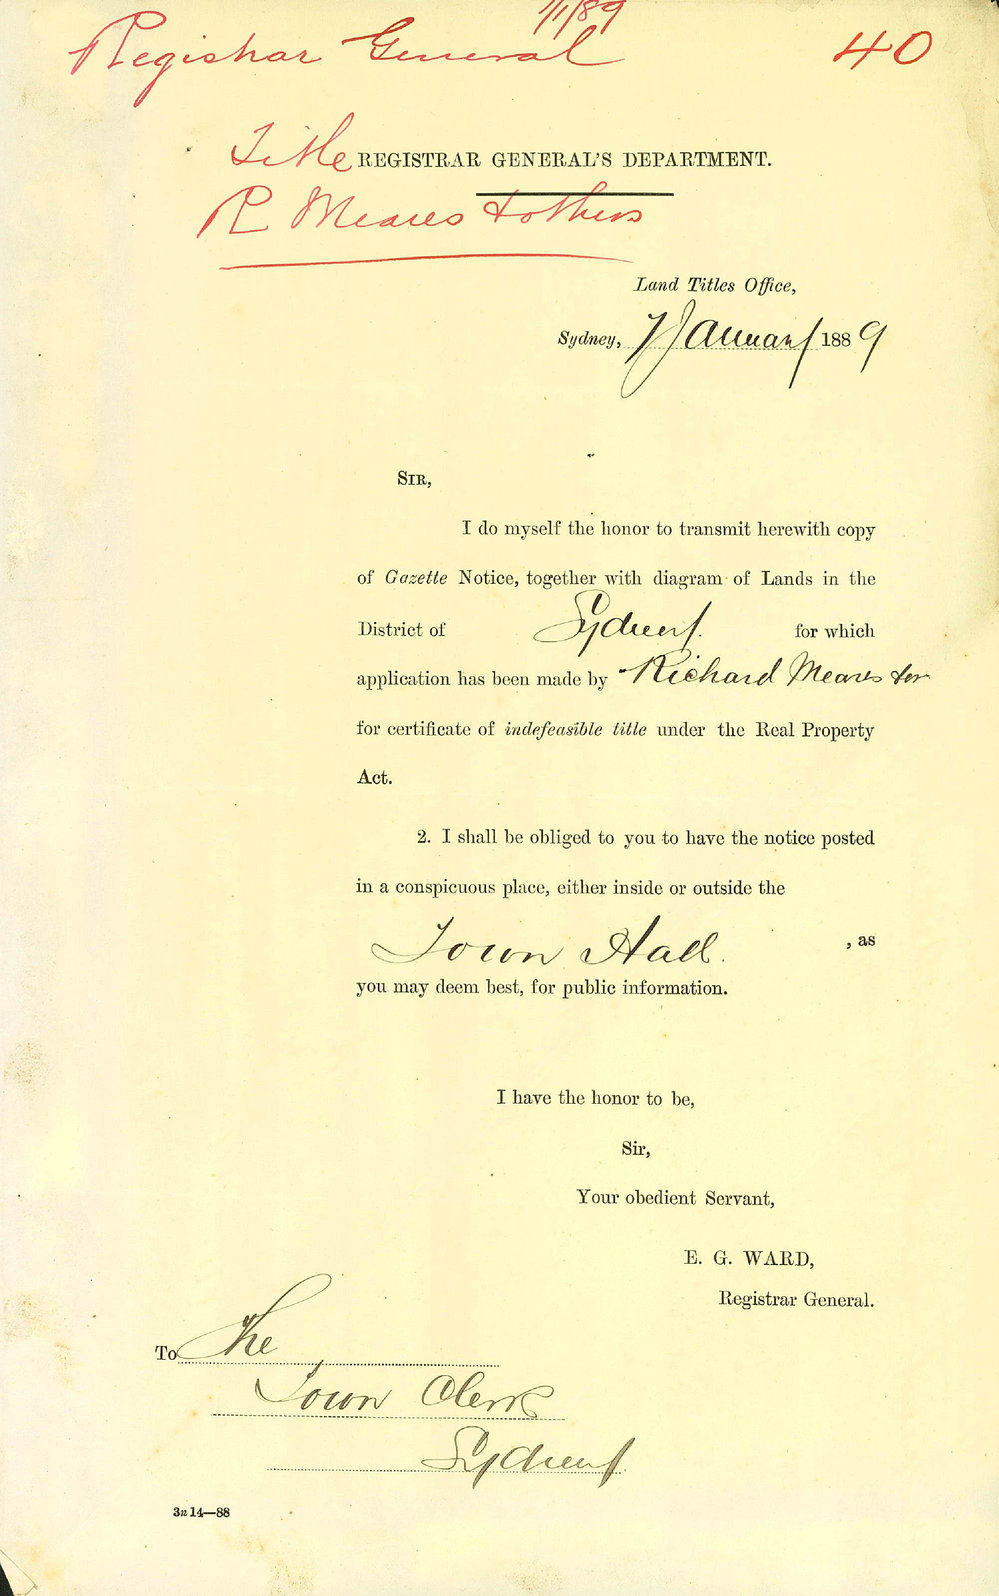 7/1/89
Registrar General 40
Title REGISTRAR GENERAL'S DEPARTMENT.
R Meares & others
Land Titles Office,
Sydney, 7 January 1889
SIR,
I do myself the honor to transmit herewith copy
of Gazette Notice, together with diagram of Lands in the
District of Sydney. for which
application has been made by Richard Meares & or
for certificate of indefeasible title under the Real Property
Act.
2. I shall be obliged to you to have the notice posted
in a conspicuous place, either inside or outside the
Town Hall. , as
you may deem best, for public information.
I have the honor to be,
Sir,
Your obedient Servant,
E. G. WARD,
Registrar General.
To The
Town Clerk
Sydney.
3n 14—88